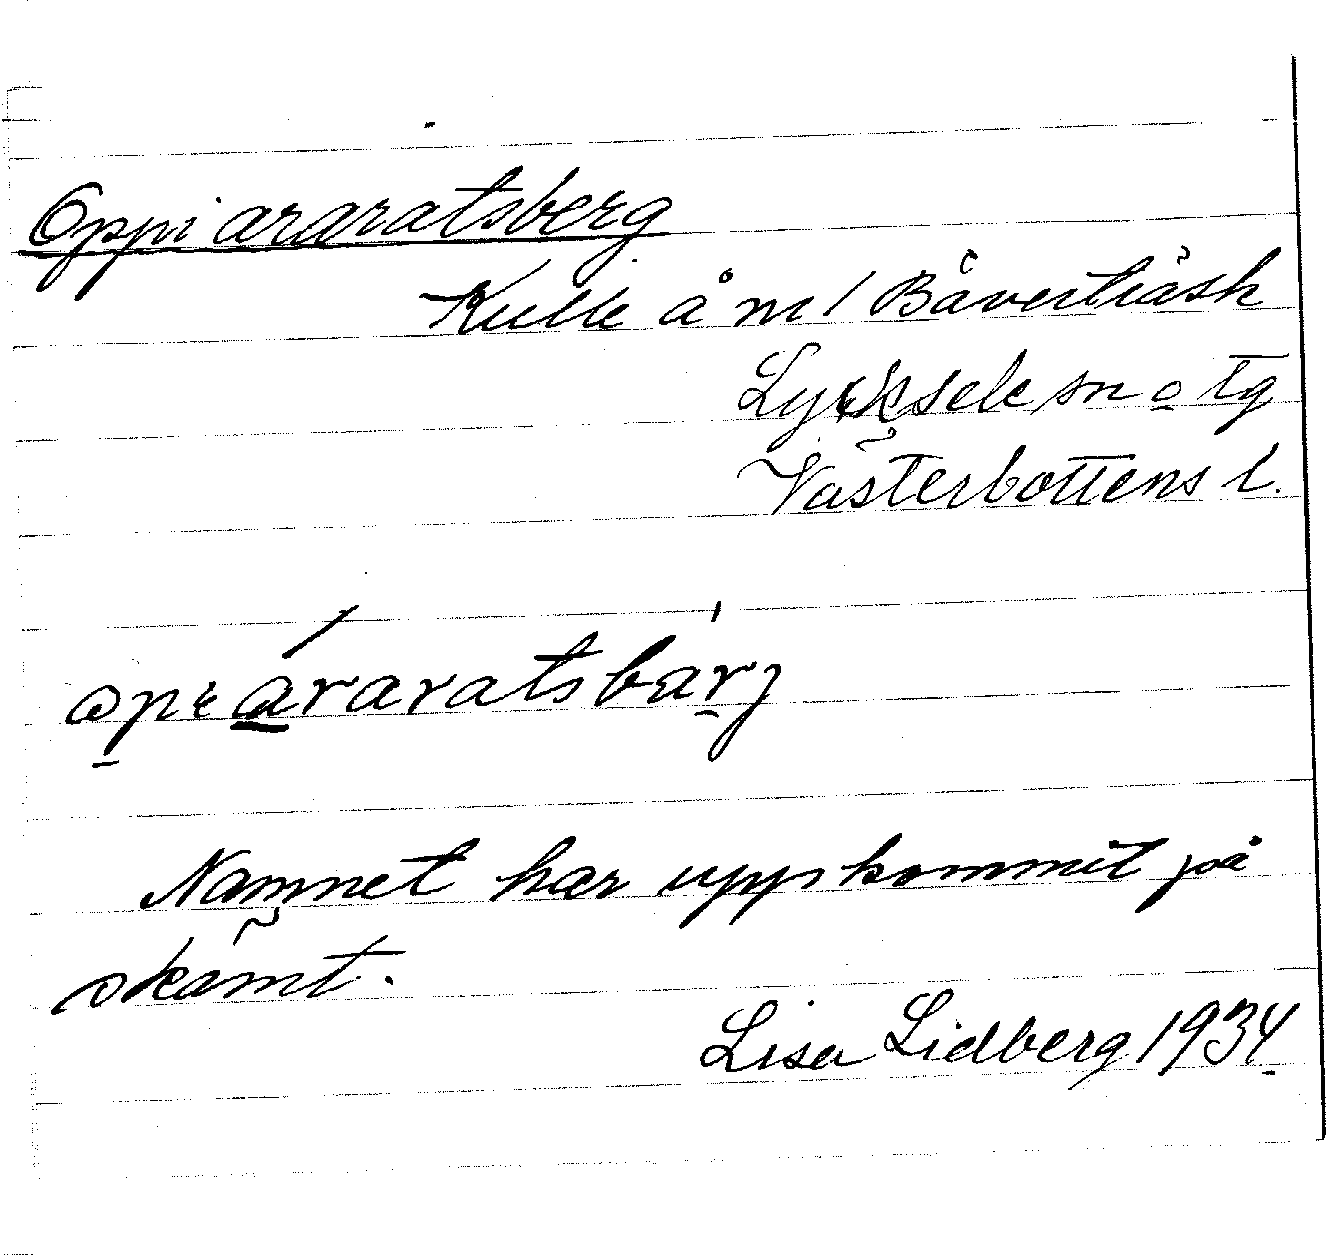 Oppi araratsberg
Kulle å m / Bäverträsk
Lycksele sn o tg
Västerbottens l.
opɩ araratsbarj
Namnet har uppkommit på
skämt.
Lisa Lidberg 1934